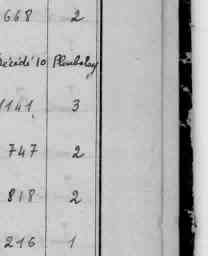 668 2
décédé 10 Plumbolay
1141 3
747 2
818 2
216 1